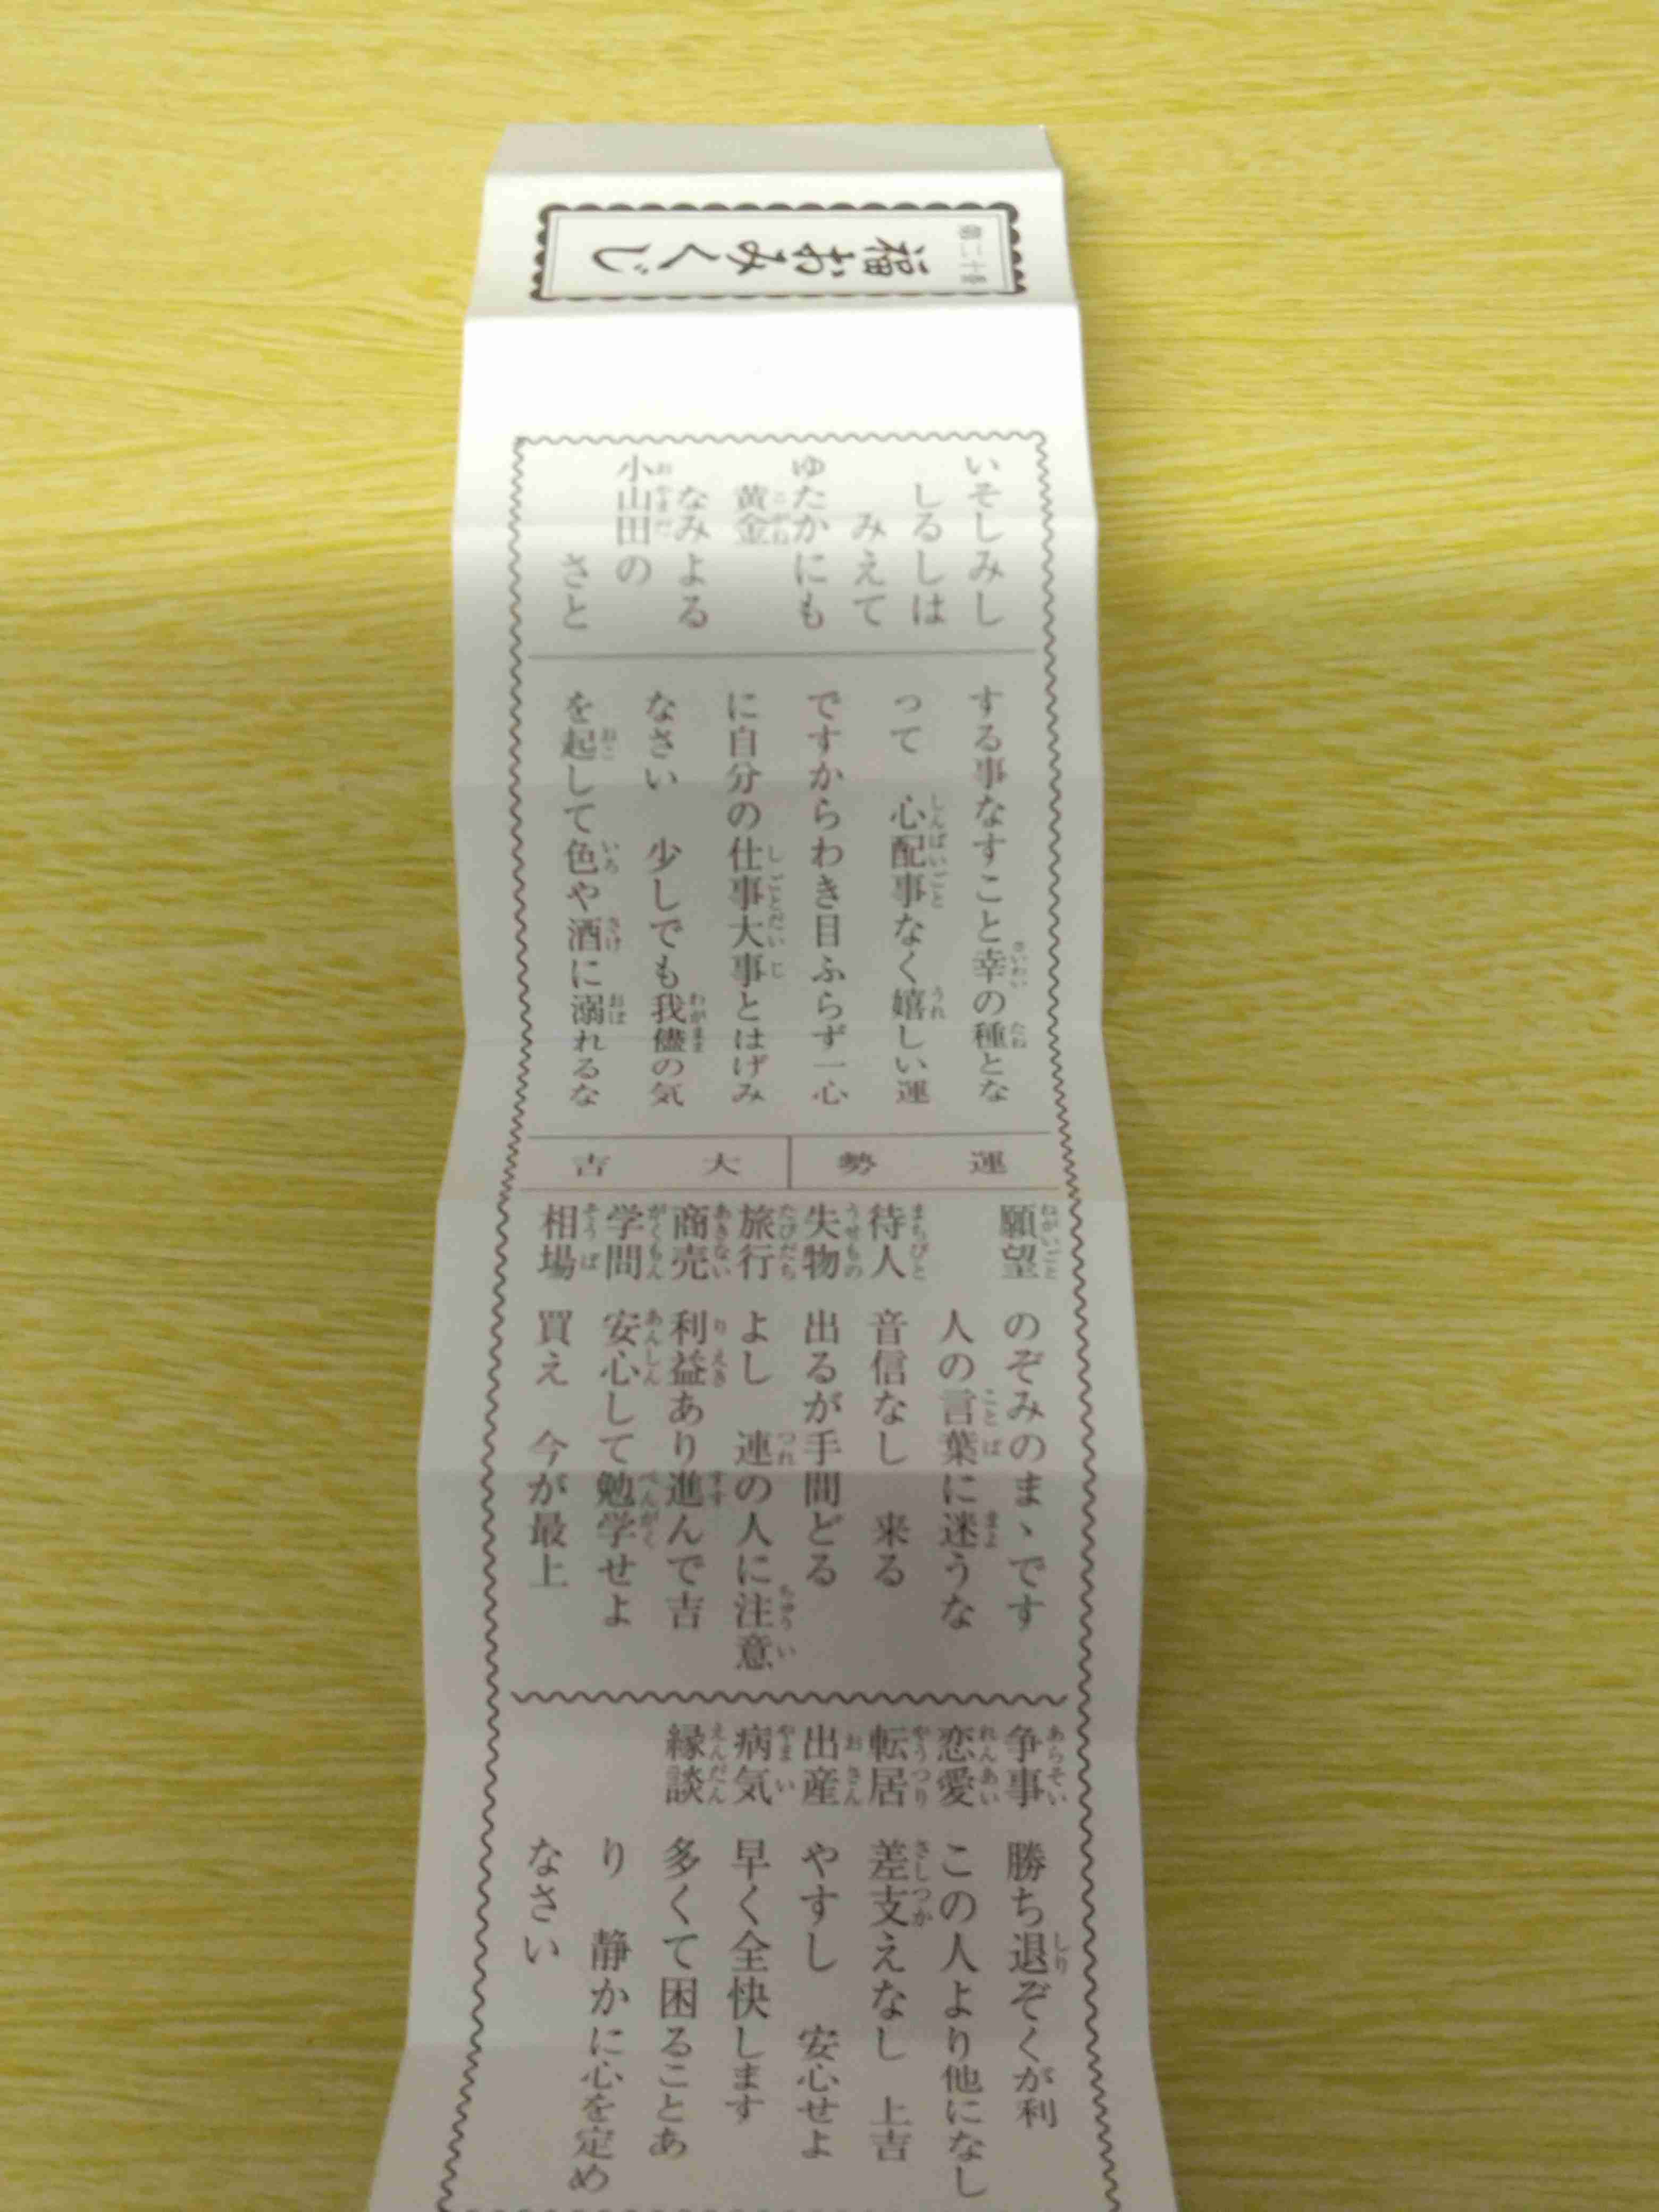 第二十番
福おみくじ
いそしみし
しるしは
みえて
ゆたかにも
黄金
なみよる
小山田の
さと
する事なすこと幸の種とな
って 心配事なく嬉しい運
ですからわき目ふらず一心
に自分の仕事大事とはげみ
なさい 少しでも我儘の気
を起して色や酒に溺れるな
運勢 大吉
願望 のぞみのまゝです
人の言葉に迷うな
待人 音信なし 来る
失物 出るが手間どる
旅行 よし 連の人に注意
商売 利益あり進んで吉
学問 安心して勉学せよ
相場 買え 今が最上
争事 勝ち退ぞくが利
恋愛 この人より他になし
転居 差支えなし 上吉
出産 やすし 安心せよ
病気 早く全快します
縁談 多くて困ることあ
り 静かに心を定め
なさい